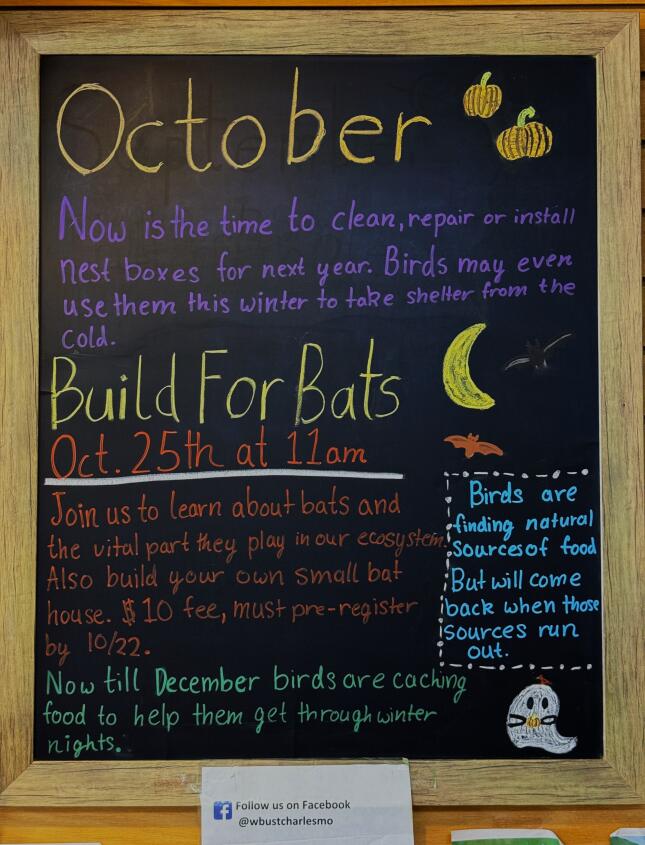 October
Now is the time to clean, repair or install
nest boxes for next year. Birds may even
use them this winter to take shelter from the
cold.
Build For Bats
Oct. 25th at 11am
Join us to learn about bats and
the vital part they play in our ecosystem.
Also build your own small bat
house. $10 fee, must pre-register
by 10/22.
Birds are
finding natural
sources of food
But will come
back when those
sources run
out.
Now till December birds are caching
food to help them get through winter
nights.
Follow us on Facebook
@wbustcharlesmo